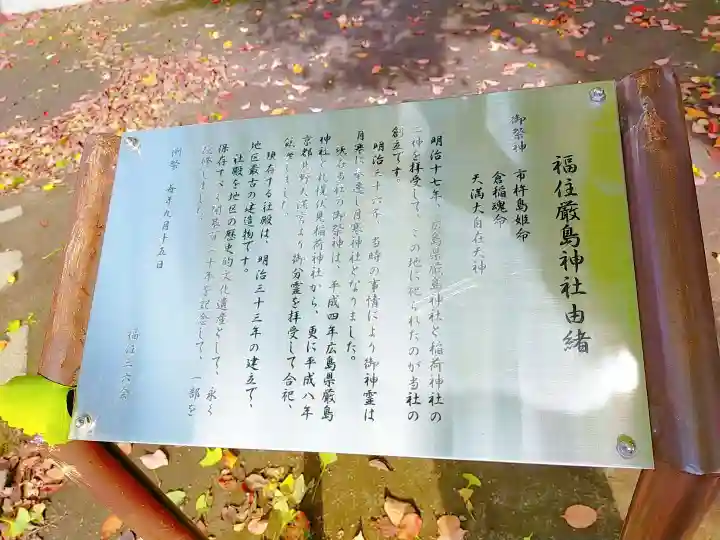 福住厳島神社由緒
御祭神　市杵島姫命
倉稲魂命
天満大自在天神
明治十七年、広島県厳島神社と稲荷神社の
二神を拝受して、この地に祀られたのが当社の
創立です。
明治三十六年、当時の事情により御神霊は
月寒に遷し月寒神社となりました。
現在当社の御祭神は、平成四年広島県厳島
神社と札幌伏見稲荷神社から、更に平成八年
京都北野天満宮より御分霊を拝受して合祀、
しました。
現存する社殿は、明治三十三年の建立で、
地区最古の建造物です。
社殿を地区の歴史的文化遺産として、永く
保存すべく開基百二十年を記念して、一部を
改修しました。
例祭　毎年九月十五日
福住三六会